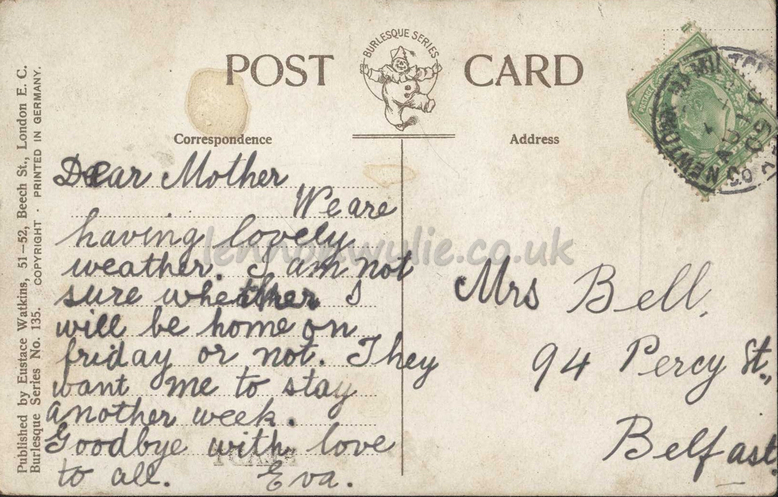 BURLESQUE SERIES
POST CARD
Correspondence
Address
Dear Mother
We are
having lovely
weather. I am not
sure whether I
will be home on
friday or not. They
want me to stay
another week.
Goodbye with love
to all. Eva.
Mrs Bell,
94 Percy St.,
Belfast.
Published by Eustace Watkins, 51–52, Beech St., London E. C.
Burlesque Series No. 135. COPYRIGHT · PRINTED IN GERMANY.
lennonwylie.co.uk